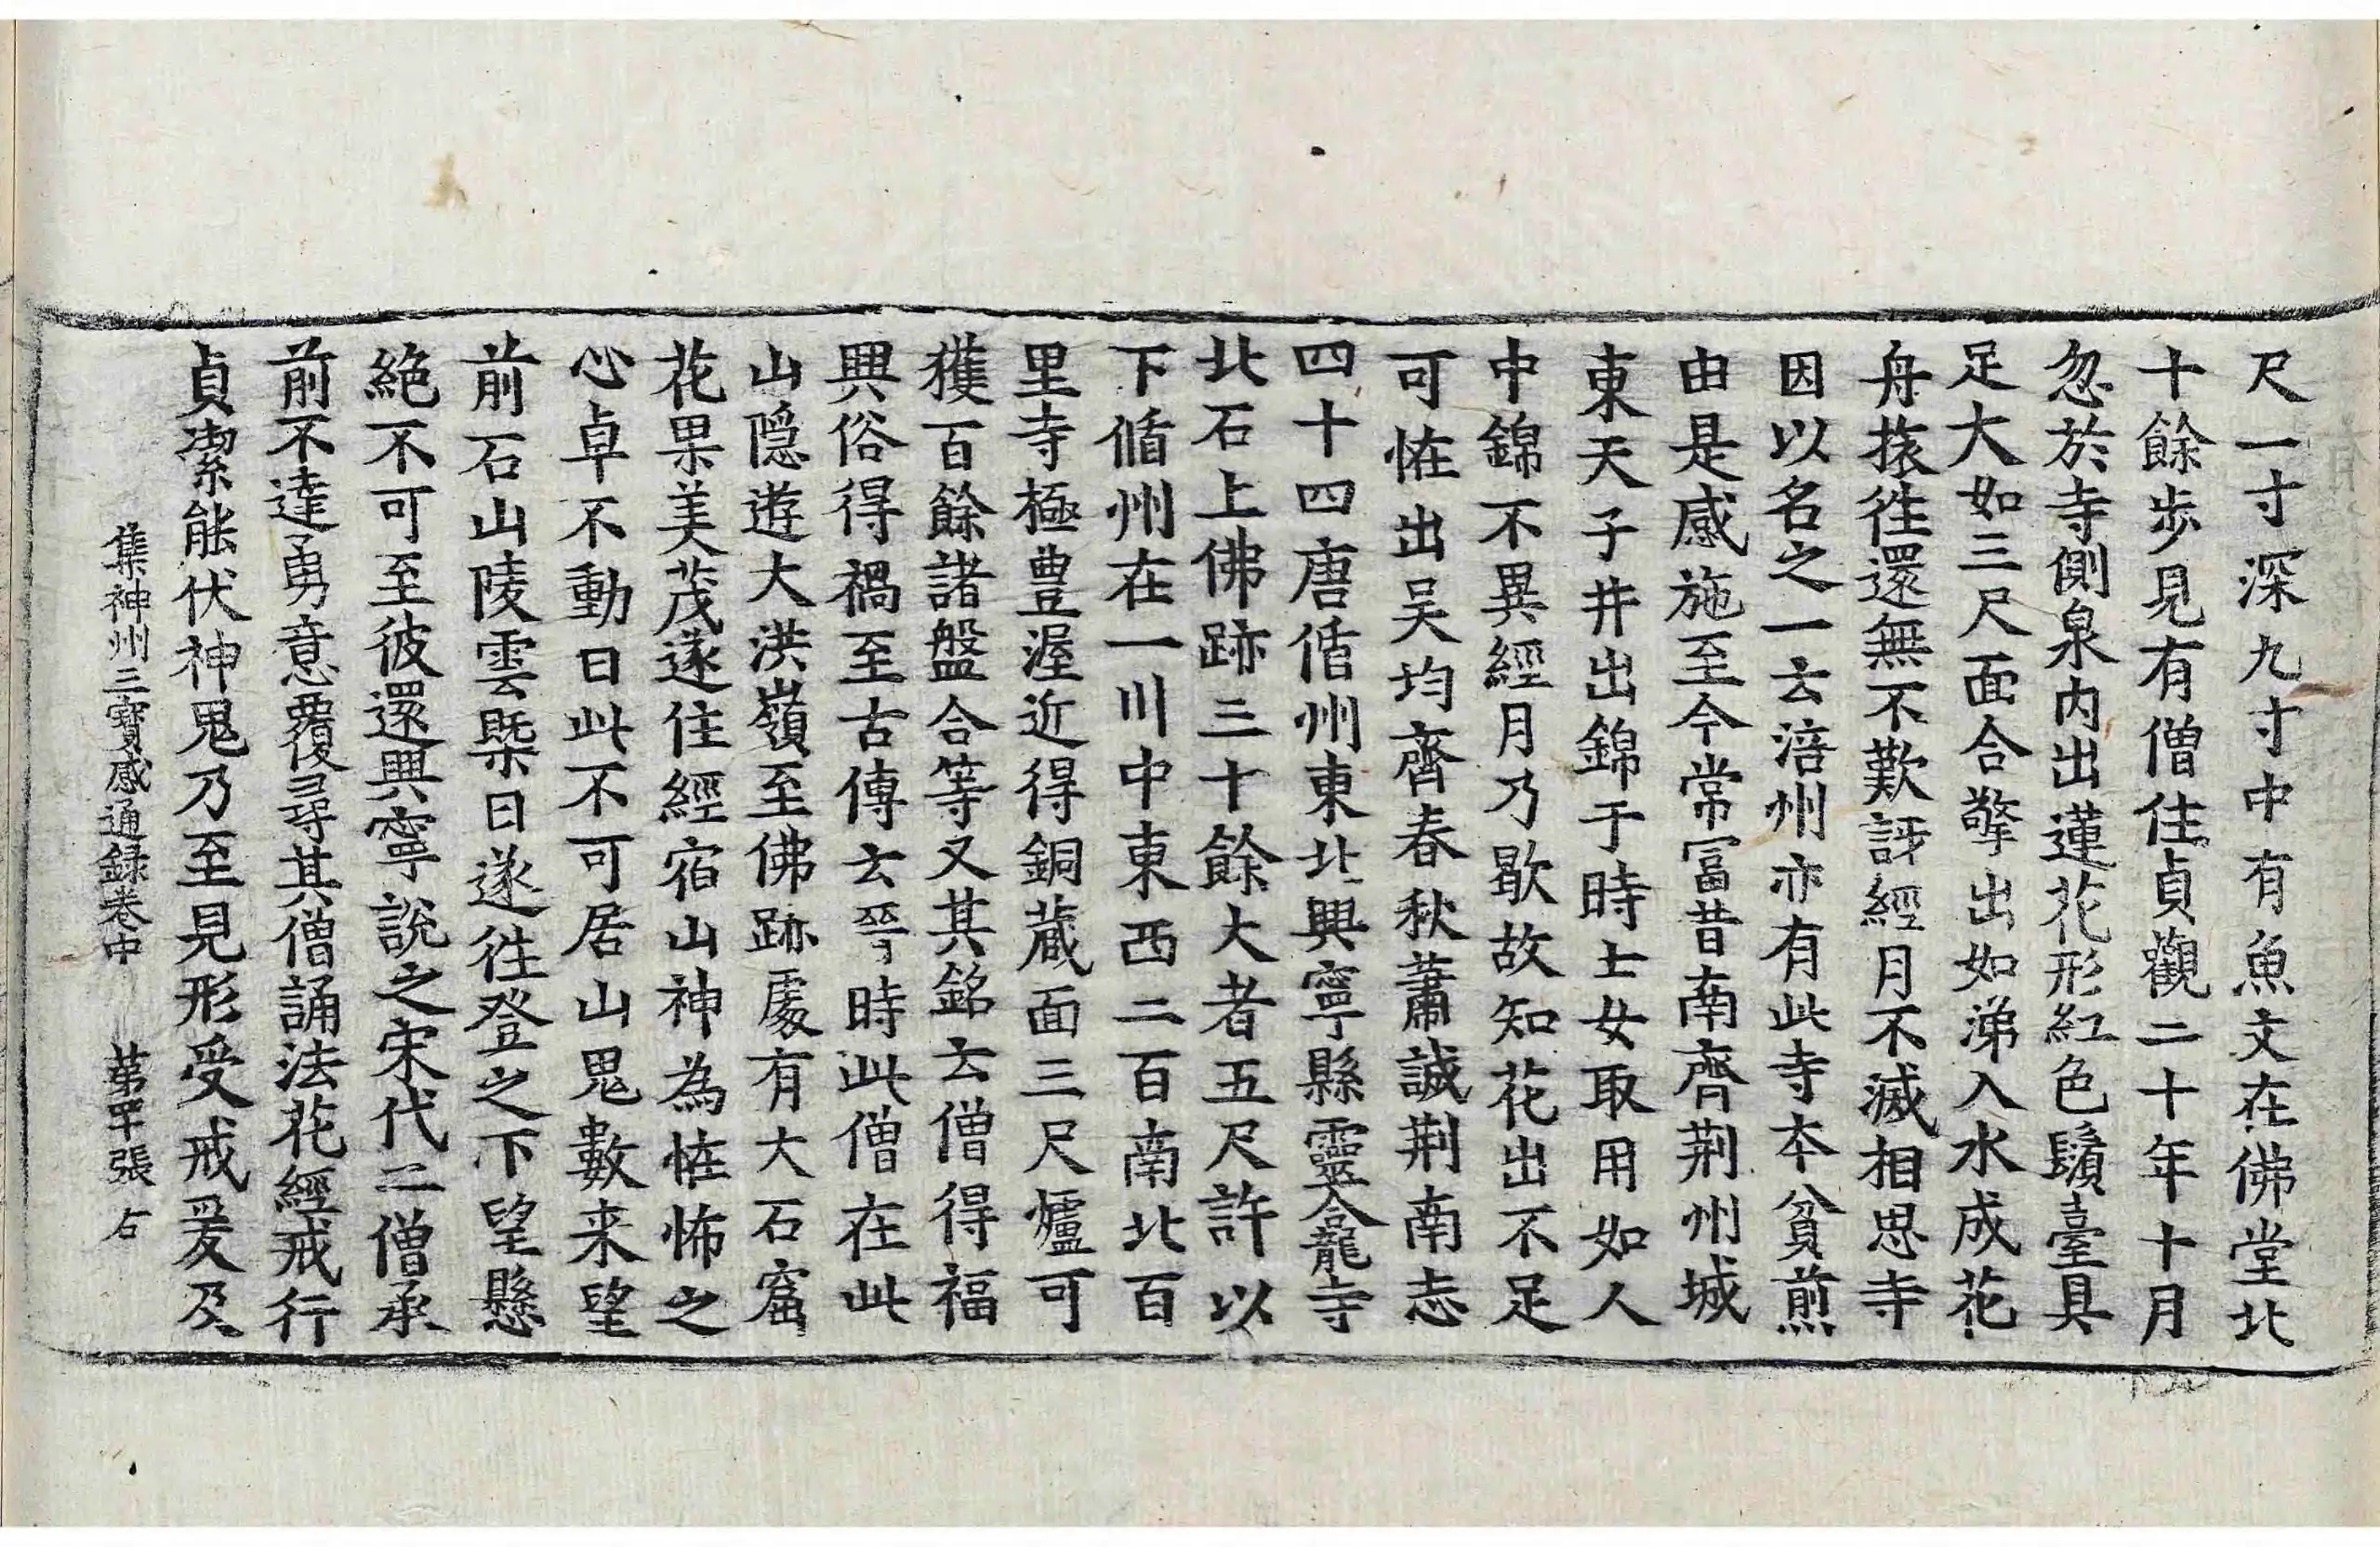 尺一寸深九寸中有魚文在佛堂北
十餘步見有僧住貞觀二十年十月
忽於寺側泉内出蓮花形紅色鬚臺具
足大如三尺面合擎出如涕入水成花
舟㨑徃還無不歎訝經月不滅相思寺
因以名之一云涪州亦有此寺本貧煎
由是感施至今常冨昔南齊荆州城
東天子井出錦于時士女取用如人
中錦不異經月乃歇故知花出不足
可恠出吴均齊春秋蕭誠荆南志
四十四唐循州東北興寧縣靈龕寺
北石上佛跡三十餘大者五尺許以
下循州在一川中東西二百南北百
里寺極豊渥近得銅蔵面三尺爐可
獲百餘諸盤合等又其銘云僧得福
興俗得禍至古傳云晉時此僧在此
山隠遊大洪嶺至佛跡處有大石窟
花果美茂遂住經宿山神為恠怖之
心卓不動曰此不可居山鬼數来望
前石山陵雲槩日遂徃登之下望懸
絶不可至彼還興寧說之宋代二僧承
前不達勇意覆尋其僧誦法花經戒行
貞潔能伏神鬼乃至見形受戒爰及
集神州三寶感通録卷中 苐罕張 占